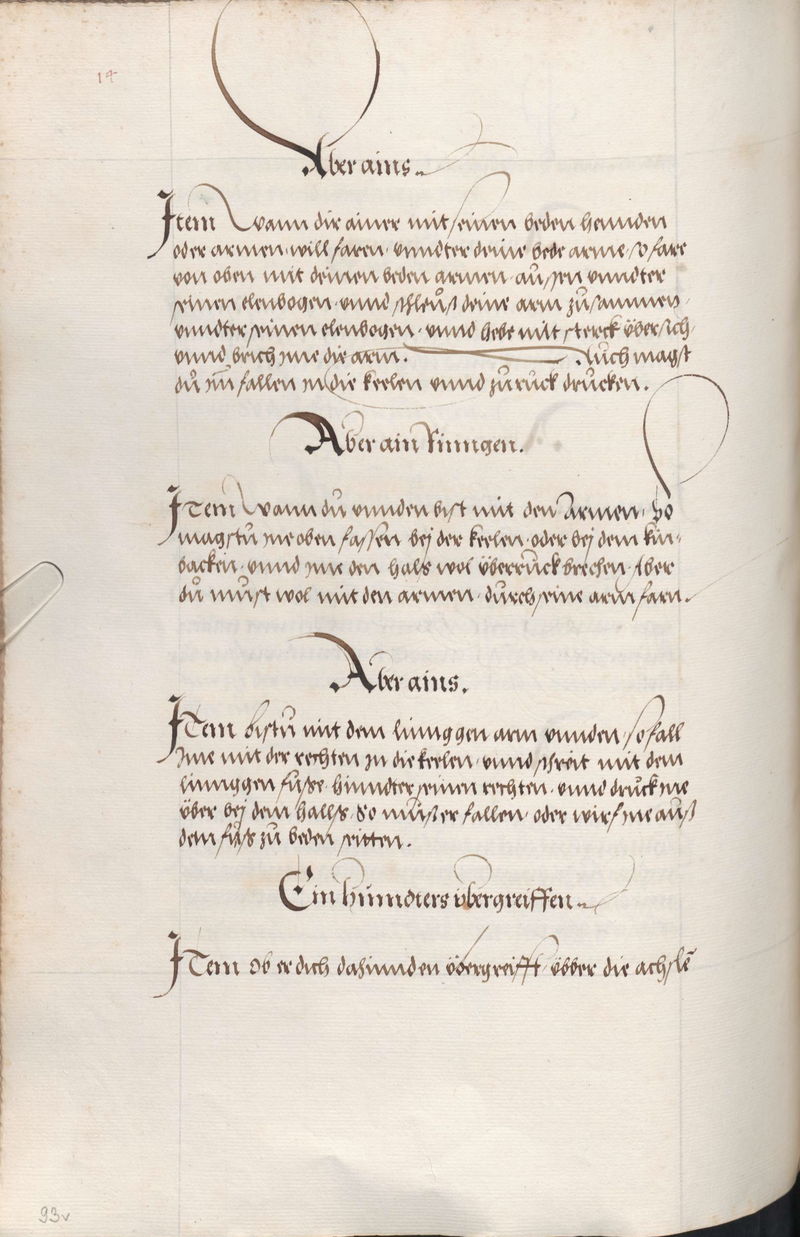 14
Aber ains.
Item Wann dir ainer mit seinen beden hennden
oder armen will faren vnndter deine bede arme, so fare
von oben mit deinen beden armen aussen vnndter
seinen elenbogen vnnd schleuß deine arm zusammen
vnndter seinen elenbogen, vnnd hebe mit sterck übersich
vnnd brich jme die arm. Auch magst
dů jm̄ fallen jn die keelen vnnd zuruck drucken.
Aber ain Ringen.
Item Wann dů vnnden bist mit den Armen, So
magstů jne oben fassen bej der keelen oder bej dem kin-
backen vnnd jme den hals wol überruck brechen, Aber
dů můst wol mit den armen durch seine arm farn.
Aber ains.
Item bistů mit dem linnggen arm vnnden so fall
jme mit der rechten jn die keelen vnnd schreit mit dem
linnggen fuße hinndter seinen rechten vnnd druck jne
über bej dem hallß, So můß er fallen, oder wirf jne auß
dem fůß zů beden seitten.
Ein hinndters übergreiffen
Item Ob er dich dahinnden übergreifft übber die achslē
93v